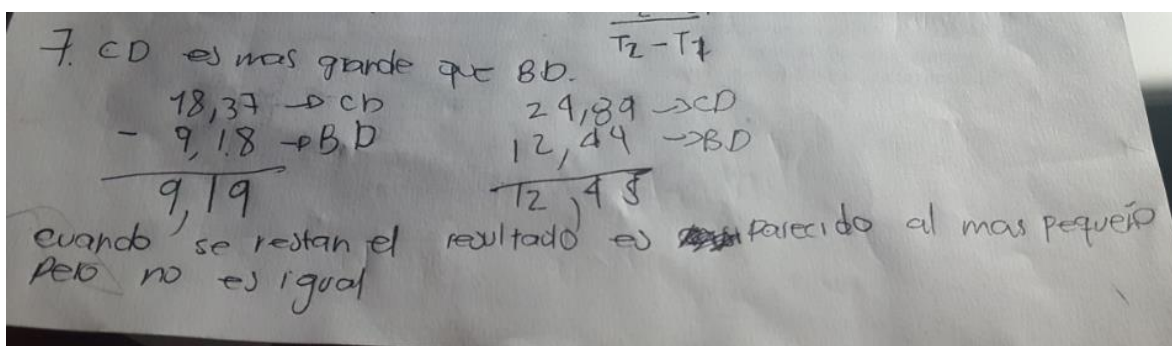 T2 - T1
7. CD es mas grande que BD.
18,37 → CD 24,89 → CD
- 9,18 → BD 12,44 → BD
9,19 12,45
cuando se restan el resultado es parecido al mas pequeño
pero no es igual